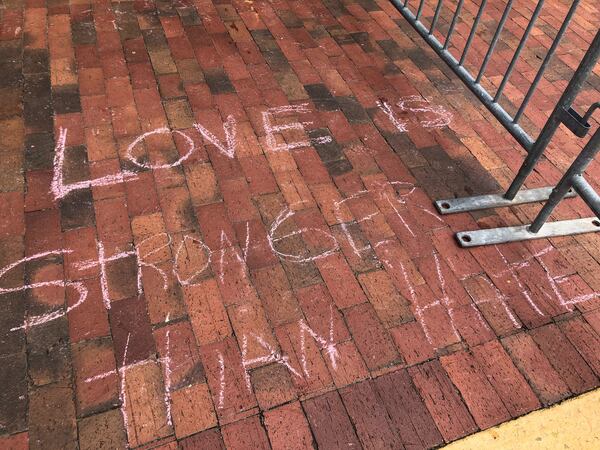 LOVE IS
STRONGER
tHAN HATE